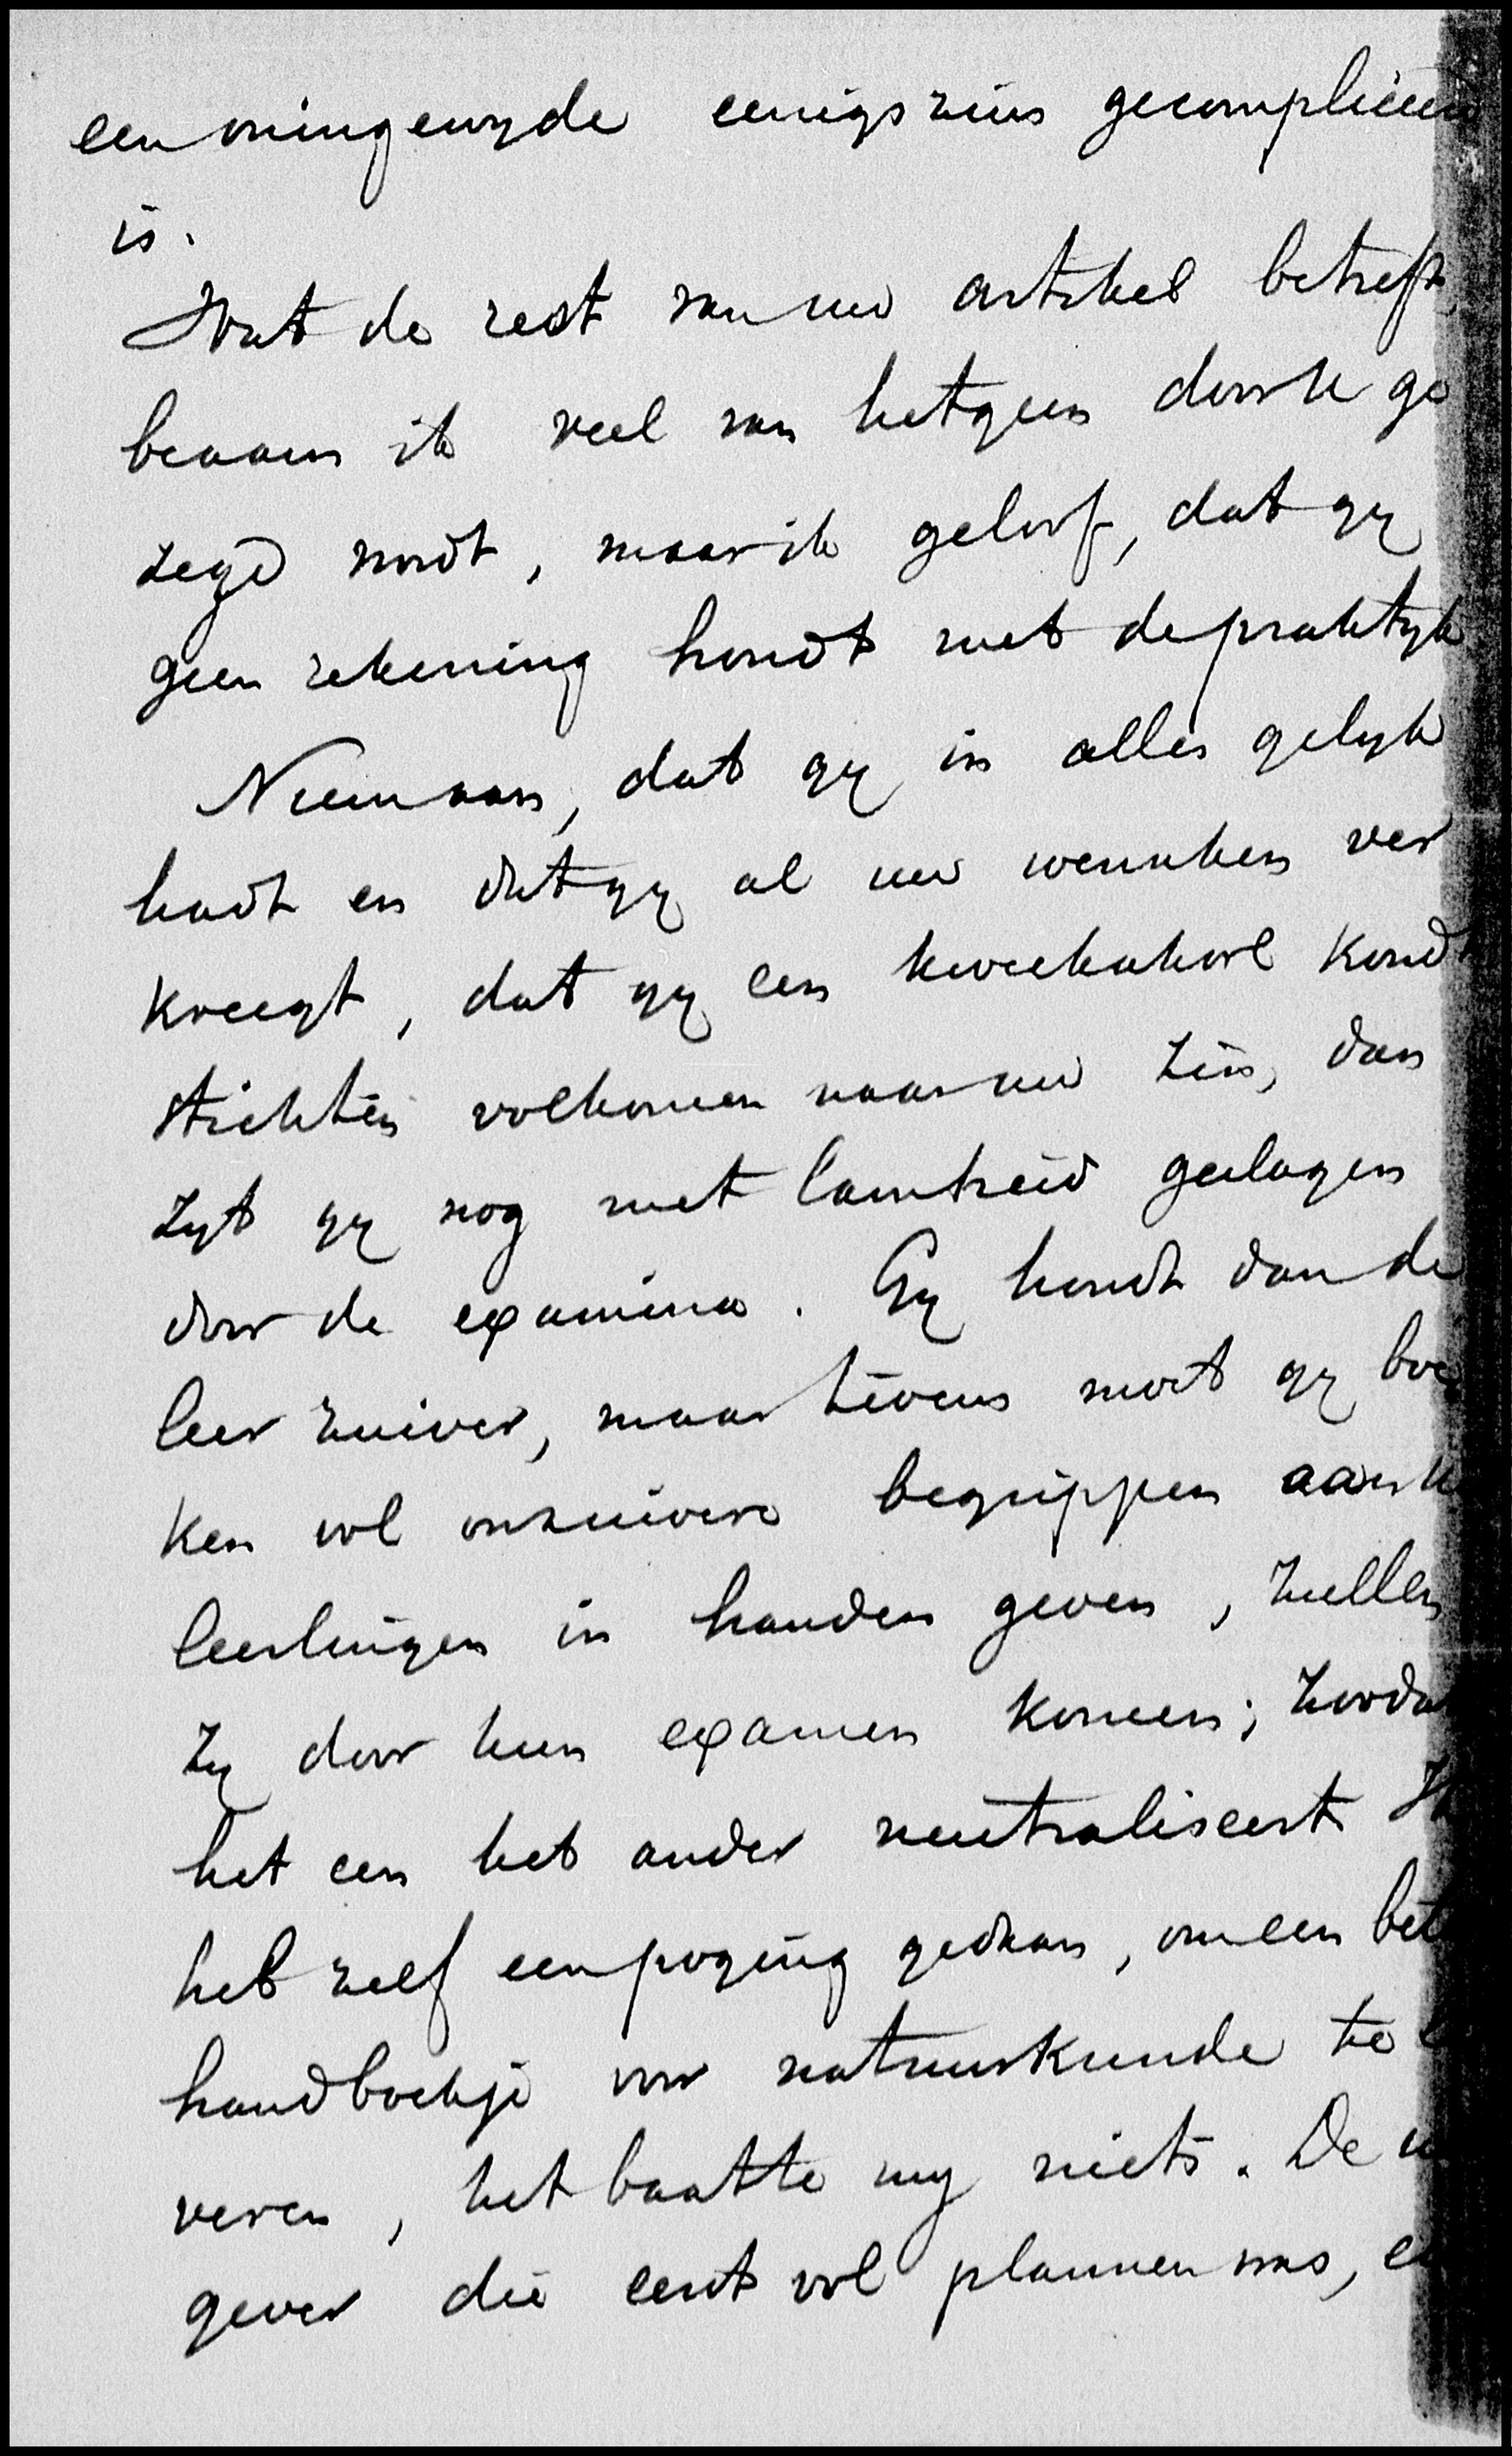 een oningewyde eenigszins gecompliceer
is.
Wat de rest van uw artikel betreft,
beaam ik veel van hetgeen door U ge
zegd wordt, maar ik geloof, dat gy
geen rekening houdt met de praktyk
Neem aan, dat gy in alles gelyk
hadt en dat gy al uw wenschen ver
kreegt, dat gy een kweekschool kondt
stichten volkomen naar uw zin, dan
zyt gy nog met lamheid geslagen
door de examina. Gy houdt dan de
leer zuiver, maar tevens moet gy boe
ken vol onzuivere begrippen aan de
leerlingen in handen geven, zullen
zy door hun examen komen; zoodat
het een het ander neutraliseert. Ik
heb zelf een poging gedaan, om een bet
handboekje voor natuurkunde te
veren, het baatte my niets. De
gever die eerst vol plannen was,